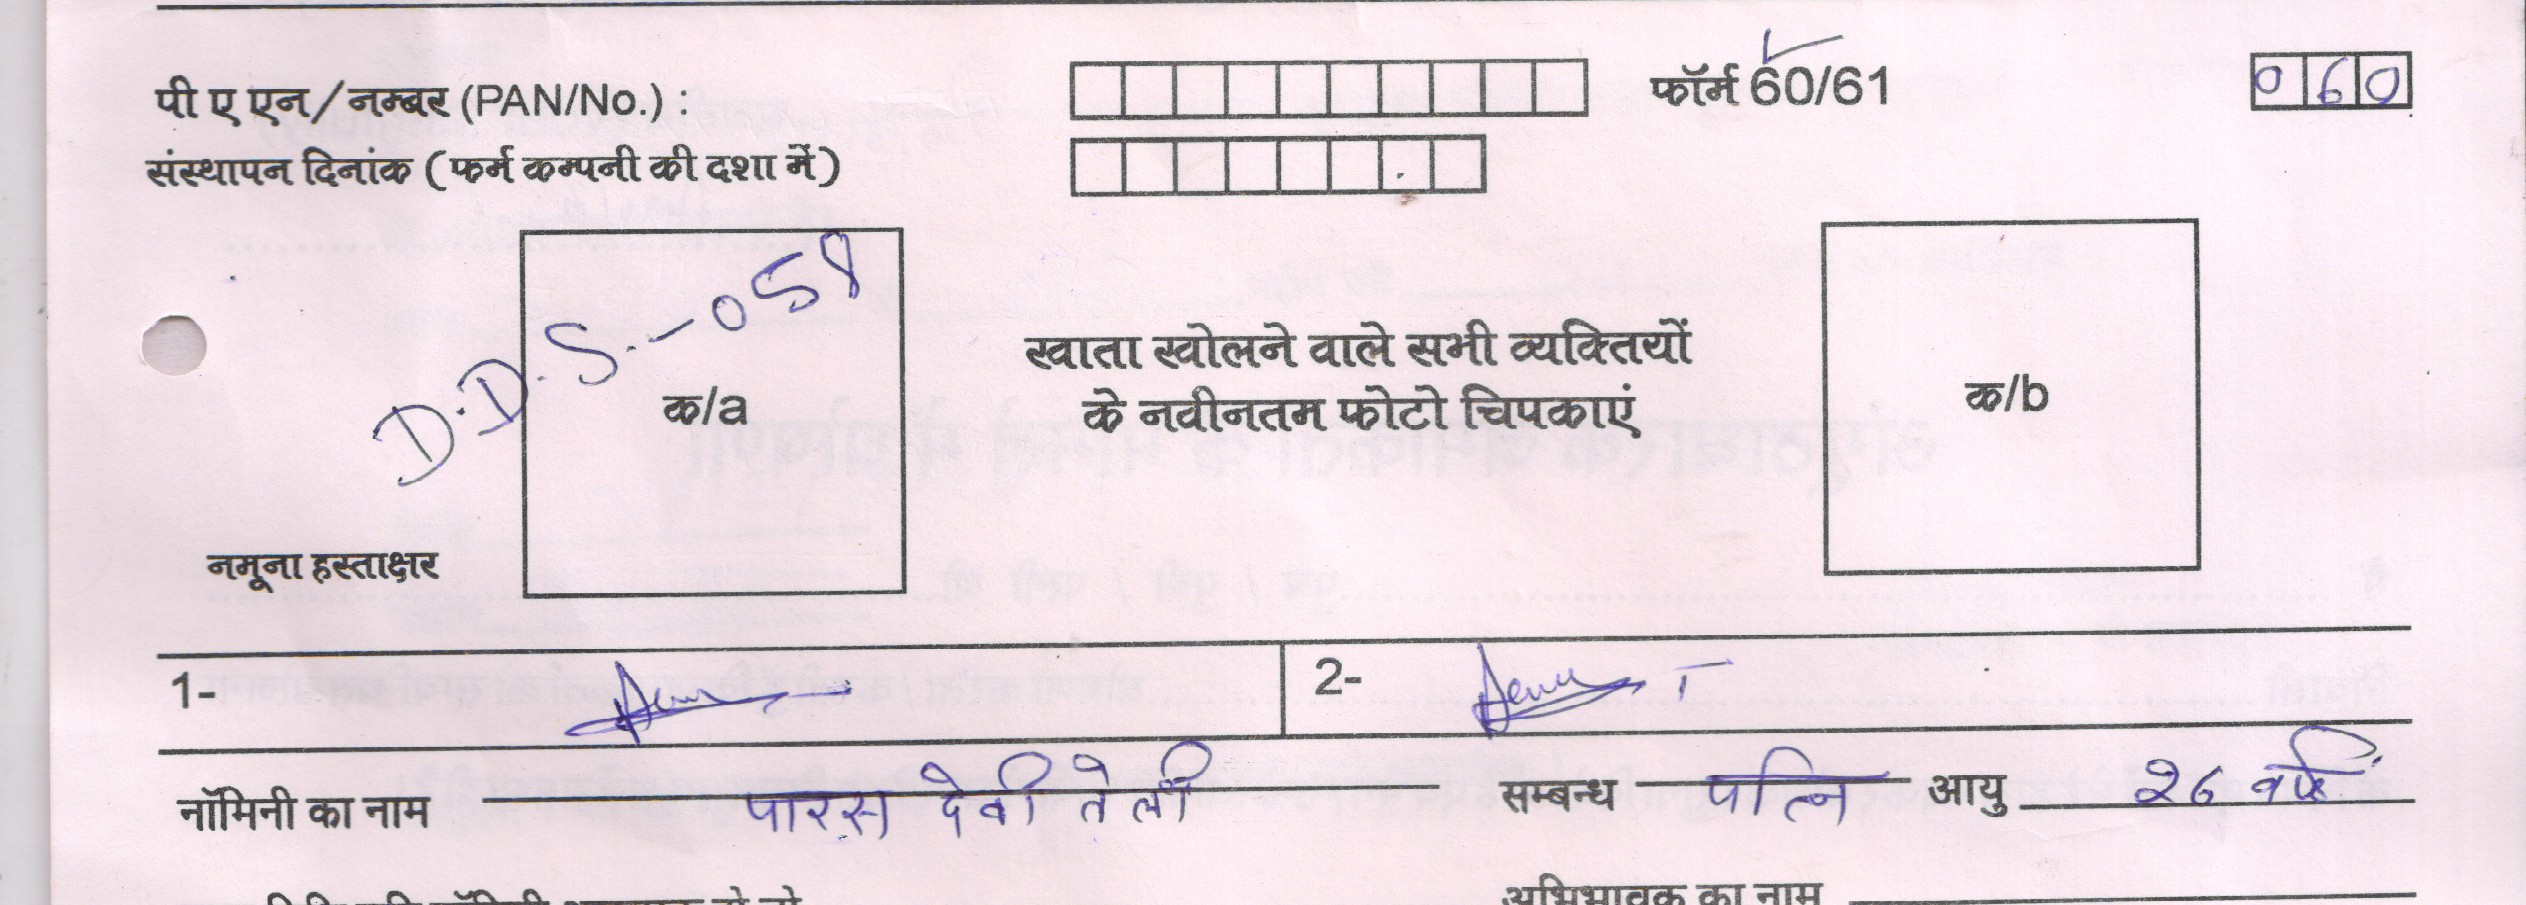 पी ए एन/नम्बर (PAN/No.) : फॉर्म 60/61 060
संस्थापन दिनांक (फर्म कम्पनी की दशा में)
D.D.S.-059
क/a
खाता खोलने वाले सभी व्यक्तियों
के नवीनतम फोटो चिपकाएं
क/b
नमूना हस्ताक्षर
1- 2-
नॉमिनी का नाम पारस देवी तेली सम्बन्ध पत्नि आयु 26 वर्ष
अभिभावक का नाम